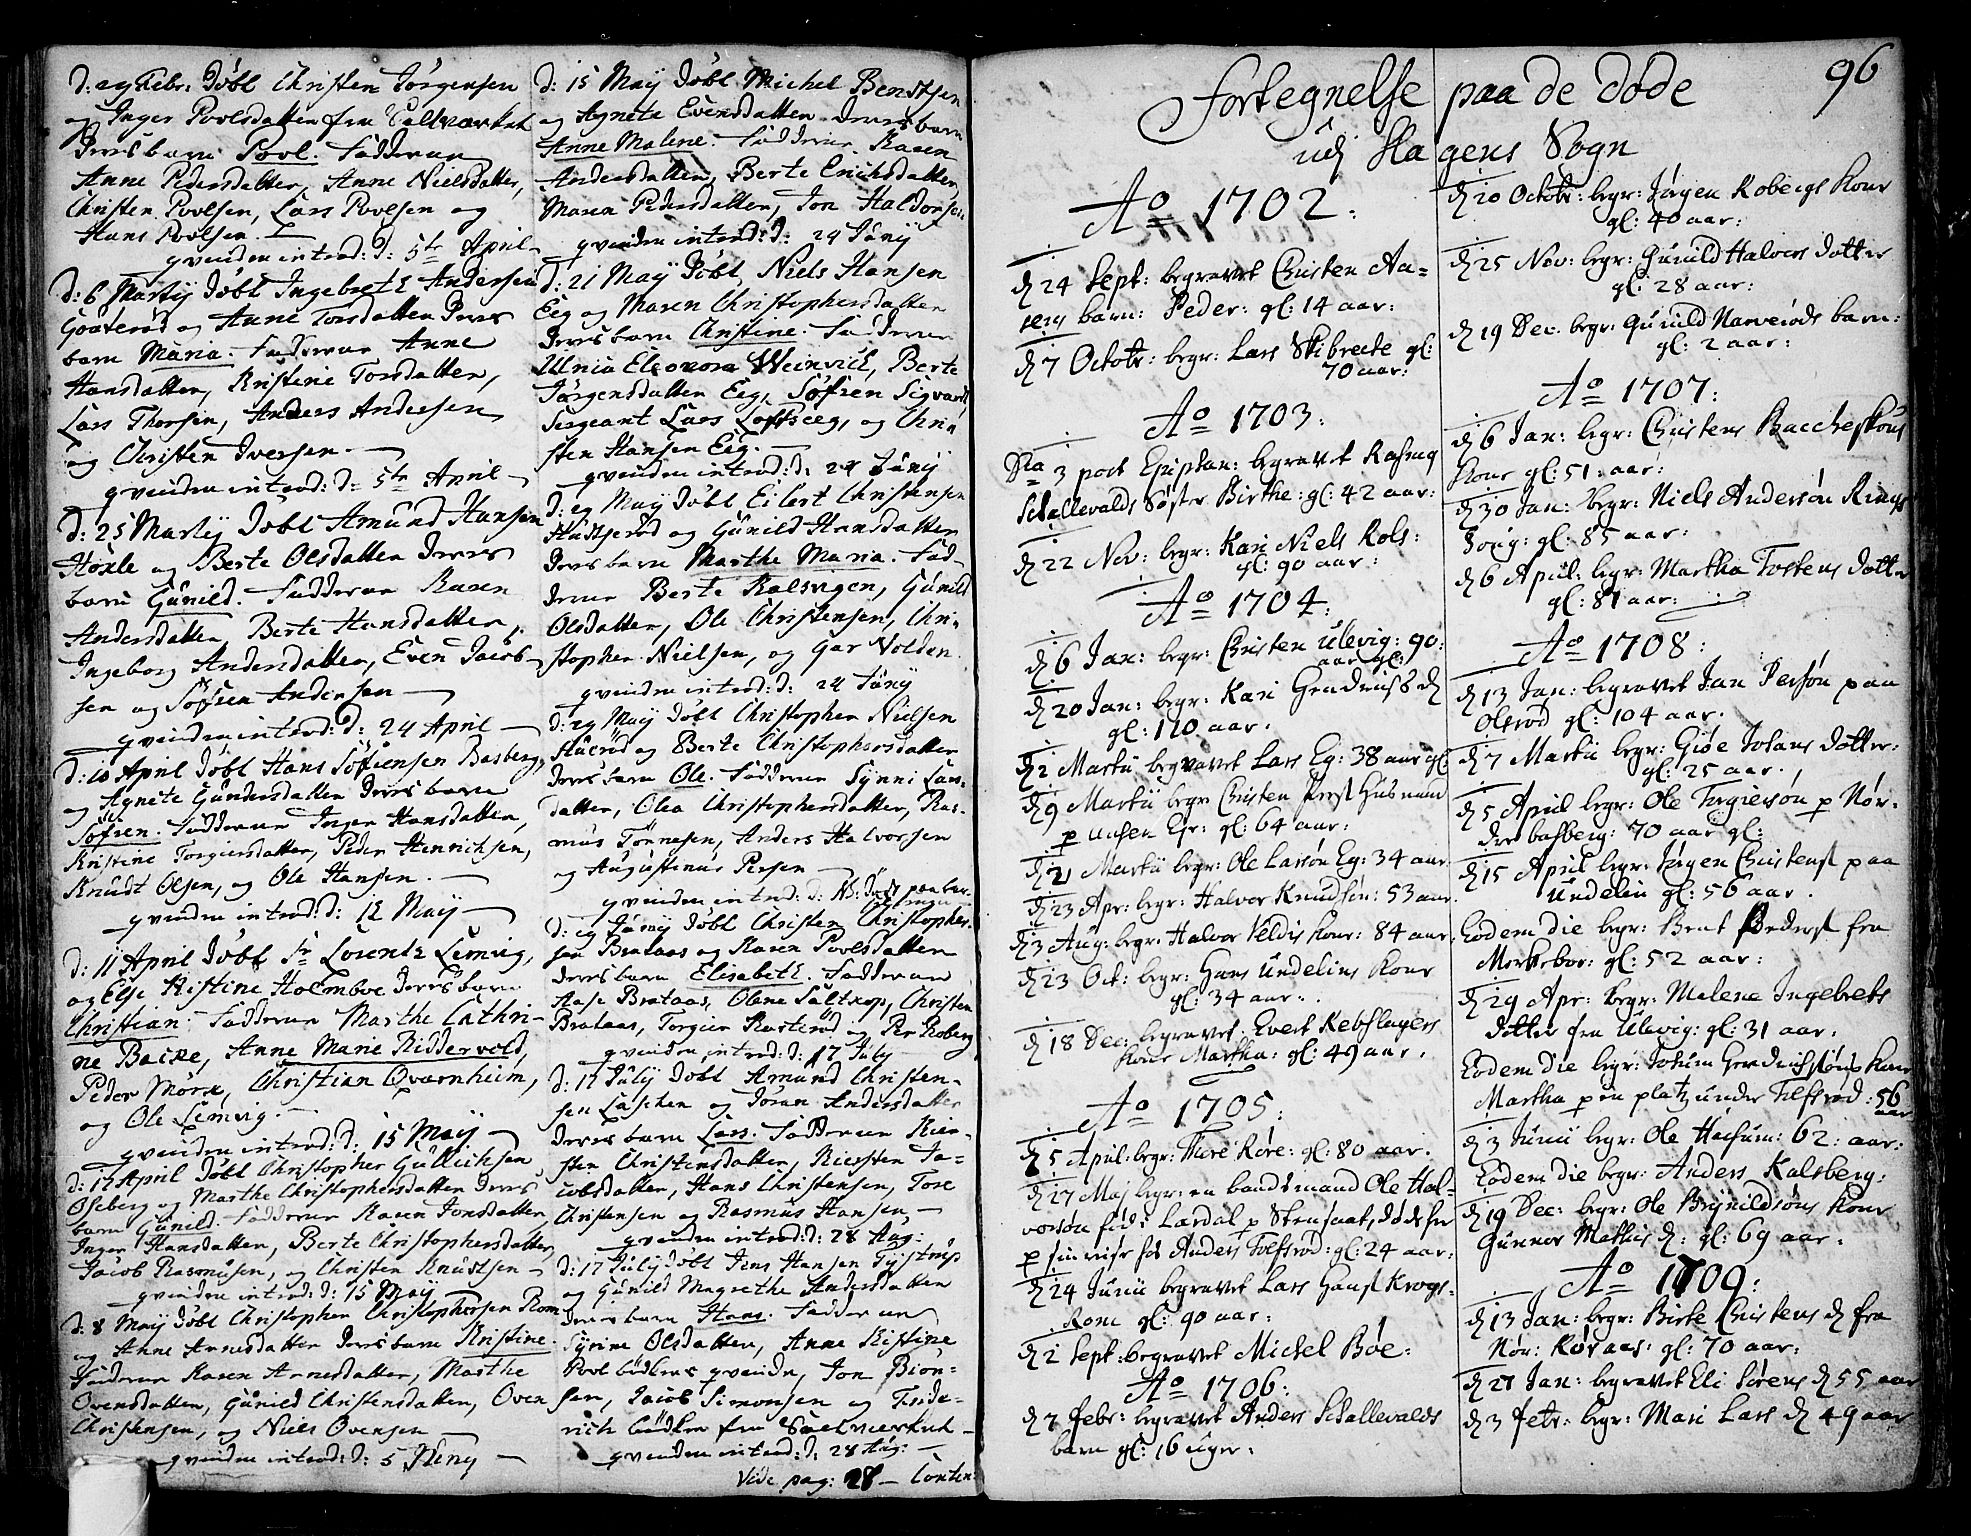 d: 29 Febr: Döbt Christen Jörgensen
og Inger Povlsdatter fra Saltværket
Deres barn Povl. Fadderne
Anne Pedersdatter, Anne Nielsdatter,
Christen Povelsen, Lars Povelsen og
Hans Povlsen.
qvinden introd: d: 5te April
d: 6 Martij Döbt Ingebret Andersen
Gaaserød og Anne Torsdatter Deres
barn Maria. Fadderne Anne
Hansdatter, Kristine Torsdatter,
Lars Thorsen, Anders Andersen
og Christen Iversen.
qvinden introd: d: 5te April
d: 25 Martij Döbt Amund Hansen
og Berte Olsdatter Deres
barn Gunild. Fadderne Karen
Andersdatter, Berte Hansdatter,
Ingeborg Andersdatter, Even Jacob-
sen og Søfren Andersen
qvinden introd: d: 24 April
d: 10 April Döbt Hans Søfrensen Basberg,
og Agnete Gundersdatter Deres barn
Søfren. Fadderne Inger Hansdatter,
Kristine Torgiersdatter, Peder Henrichsen,
Knudt Olsen, og Ole Hansen.
qvinden introd: d: 12 Maij
d: 11 April Döbt Sr Lorentz Lemvig,
og Else Kistine Holmboe Deres barn
Christian. Fadderne Marthe Cathri-
ne Backe, Anne Marie Riddervold,
Peder Mörk, Christian Qvarnheim,
og Ole Lemvig.
qvinden introd: d: 15 Maij
d: 17 April Döbt Christopher Gullichsen
Oseberg og Marthe Christophersdatter Deres
barn Gunild. Fadderne Karen Jonsdatter,
Inger Hansdatter, Berte Christophersdatter,
Jacob Rasmusen, og Christen Knudtsen
qvinden introd: d: 15 Maij
d: 8 Maij Döbt Christopher Christophersen Rom
og Anne Arnesdatter Deres barn Kristine.
Fadderne Karen Arnesdatter, Marthe
Ovensdatter, Gunild Christensdatter, Oven
Christensen, og Niels Ovensen
qvinden introd: d: 5
d: 15 Maij Döbt Michel Bendtsen
og Agnete Evensdatter Deres barn
Anne Malene. Fadderne Karen
Andersdatter, Berte Erichsdatter,
Maren Pedersdatter, Jon Haldorsen
qvinden introd: d: 24 Junij
d: 21 Maij Döbt Niels Hansen
Eeg og Maren Christophersdatter
Deres barn Christine. Fadderne
Ulrica Eleonora Weinrich, Berte
Jörgensdatter Eeg, Søfren Sigvardt
Sergeant Lars Loftseeg, og Chri-
sten Hansen Eeg.
qvinden introd: d: 24 Junij
d: 29 Maij Döbt Eilert Christensen
og Gunild Hansdatter
Deres barn Marthe Maria. Fad-
derne Berte Kalsvegen, Gunild
Olsdatter, Ole Christensen, Chri-
stopher Nielsen, og Gar Nolden.
qvinden introd: d: 24 Junij
d: 29 Maij Döbt Christopher Nielsen
og Berte Christophersdatter
Deres barn Ole. Fadderne Synni Lars-
datter, Olea Christophersdatter, Ras-
mus Tönnesen, Anders Halvorsen
og Augustinus Persen
qvinden introd: d: NB: Død paa bar-
d: 29 Junij Döbt Christen Christopher-
sen Brataas og Karen Povlsdatter
Deres barn Elisabeth. Fadderne
Aase Brataas, Olene Saltkop, Christen
Brataas, Torgier Rasterød og Per Roberg
qvinden introd: d: 17 July
d: 17 Julij Döbt Amund Christen-
sen Laschen og Jöran Andersdatter
Deres barn Lars. Fadderne Kier-
sten Christensdatter, Kiersten Ja-
cobsdatter, Hans Christensen, Tore
Christensen og Rasmus Hansen
qvinden introd: d: 28 Aug:
d: 17 Julij Döbt Jens Hansen
og Gunild Magrethe Andersdatter
Deres barn Hans. Fadderne
Syrine Olsdatter, Anne Kistine
Povl bödkers qvinde, Jon Biön-
sen, Jacob Simonsen og Frede-
rich bödker fra Saltværket
qvinden introd: d: 28 Aug:
Vide pag: 28 - Conten
96
Fortegnelse paa de døde
udj Slagens Sogn
Ao 1702:
d 24 Sept: begravet Christen Aa-
sens barn: Peder: gl: 14 aar:
d 7 Octobr: begr: Lars Skibrede gl:
70 aar:
Ao 1703:
Dca 3 post Epiphan: begravet Rasmus
Schallevalds Søster Birthe: gl: 42 aar:
d 22 Nov: begr: Kari Niels Kols:
gl: 90 aar:
Ao 1704:
d 6 Jan: begr: Christen Ulevig: 90:
aar gl:
d 20 Jan: begr: Kari Hendrichs d
gl: 110 aar.
d 2 Martii begravet Lars Eg: 38 aar gl:
d 9 Martii begr: Christen Pers Huusmand
p Unsen Eje: gl: 64 aar:
d 21 Martii begr: Ole Larsøn Eg: 34 aar
d 23 Apr: begr: Halvor Knudsøn: 53 aar.
d 3 Aug: begr: Halvor Veldis Kone: 84 aar:
d 23 Oct: begr: Hans Undelins Kone
gl: 34 aar.
d 18 Dec: begravet Evert Rebslagers
Kone Martha: gl: 49 aar.
Ao 1705:
d 5 April: begr: Thore Røre: gl: 80 aar.
d 27 Maj begr: en baadsmand Ole Hal-
vorsøn fød i Lardal p Stensaat, døde her
p sin reise hos Anders Tolfsrød: gl: 24 aar:
d 24 Junii begravet Lars Hans Krogs-
Rom gl: 90 aar:
d 2 Sept: begravet Michel Bøe:
Ao 1706:
d 7 Febr: begravet Anders Schallevalds
barn gl: 16 uger:
d 20 Octobr: begr: Jørgen Robergs Kone
gl: 40 aar:
d 25 Nov: begr: Gunild Halvors dotter
gl: 28 aar:
d 19 Dec: begr: Gunild Narverøds barn:
gl: 2 aar:
Ao 1707:
d 6 Jan: begr: Christens Baccheskous
Kone gl: 51: aar:
d 30 Jan: begr: Niels Andersøn Rings-
houg: gl: 85 aar:
d 6 April: begr: Martha Tostens dotter
gl: 81 aar:
Ao 1708:
d 13 Jan: begravet Jan Persøn paa
Olsrød gl: 104 aar:
d 7 Martii begr: Giøe Johans dotter:
gl: 25 aar.
d 5 April begr: Ole Torgiersøn p Nør-
dre basberg: 70 aar gl:
d 15 April begr: Jørgen Christens paa
Undelin gl: 56 aar.
Eodem die begr: Bent Peders fra
Merkebøe: gl: 52 aar:
d 29 Apr: begr: Malene Ingebrets
dotter fra Ulevig: gl: 31 aar:
Eodem die begr: Johum Hendrichsøns Kone
Martha p en platz under Tolfsrød: 56
aar
d 3 Junii begr: Ole Heisum: 62: aar:
Eodem die begr: Anders Kalsberg:
d 19 Dec: begr: Ole Brynildsøns Kone
Gunnor Mathis d: gl: 69 aar.
Ao 1709:
d 13 Jan: begr: Birte Christens d fra
Nør: Røraas: gl: 70 aar:
d 27 Jan: begravet Eli Sørens d 55 aar
d 3 Febr: begr: Mari Lars d 49 aar